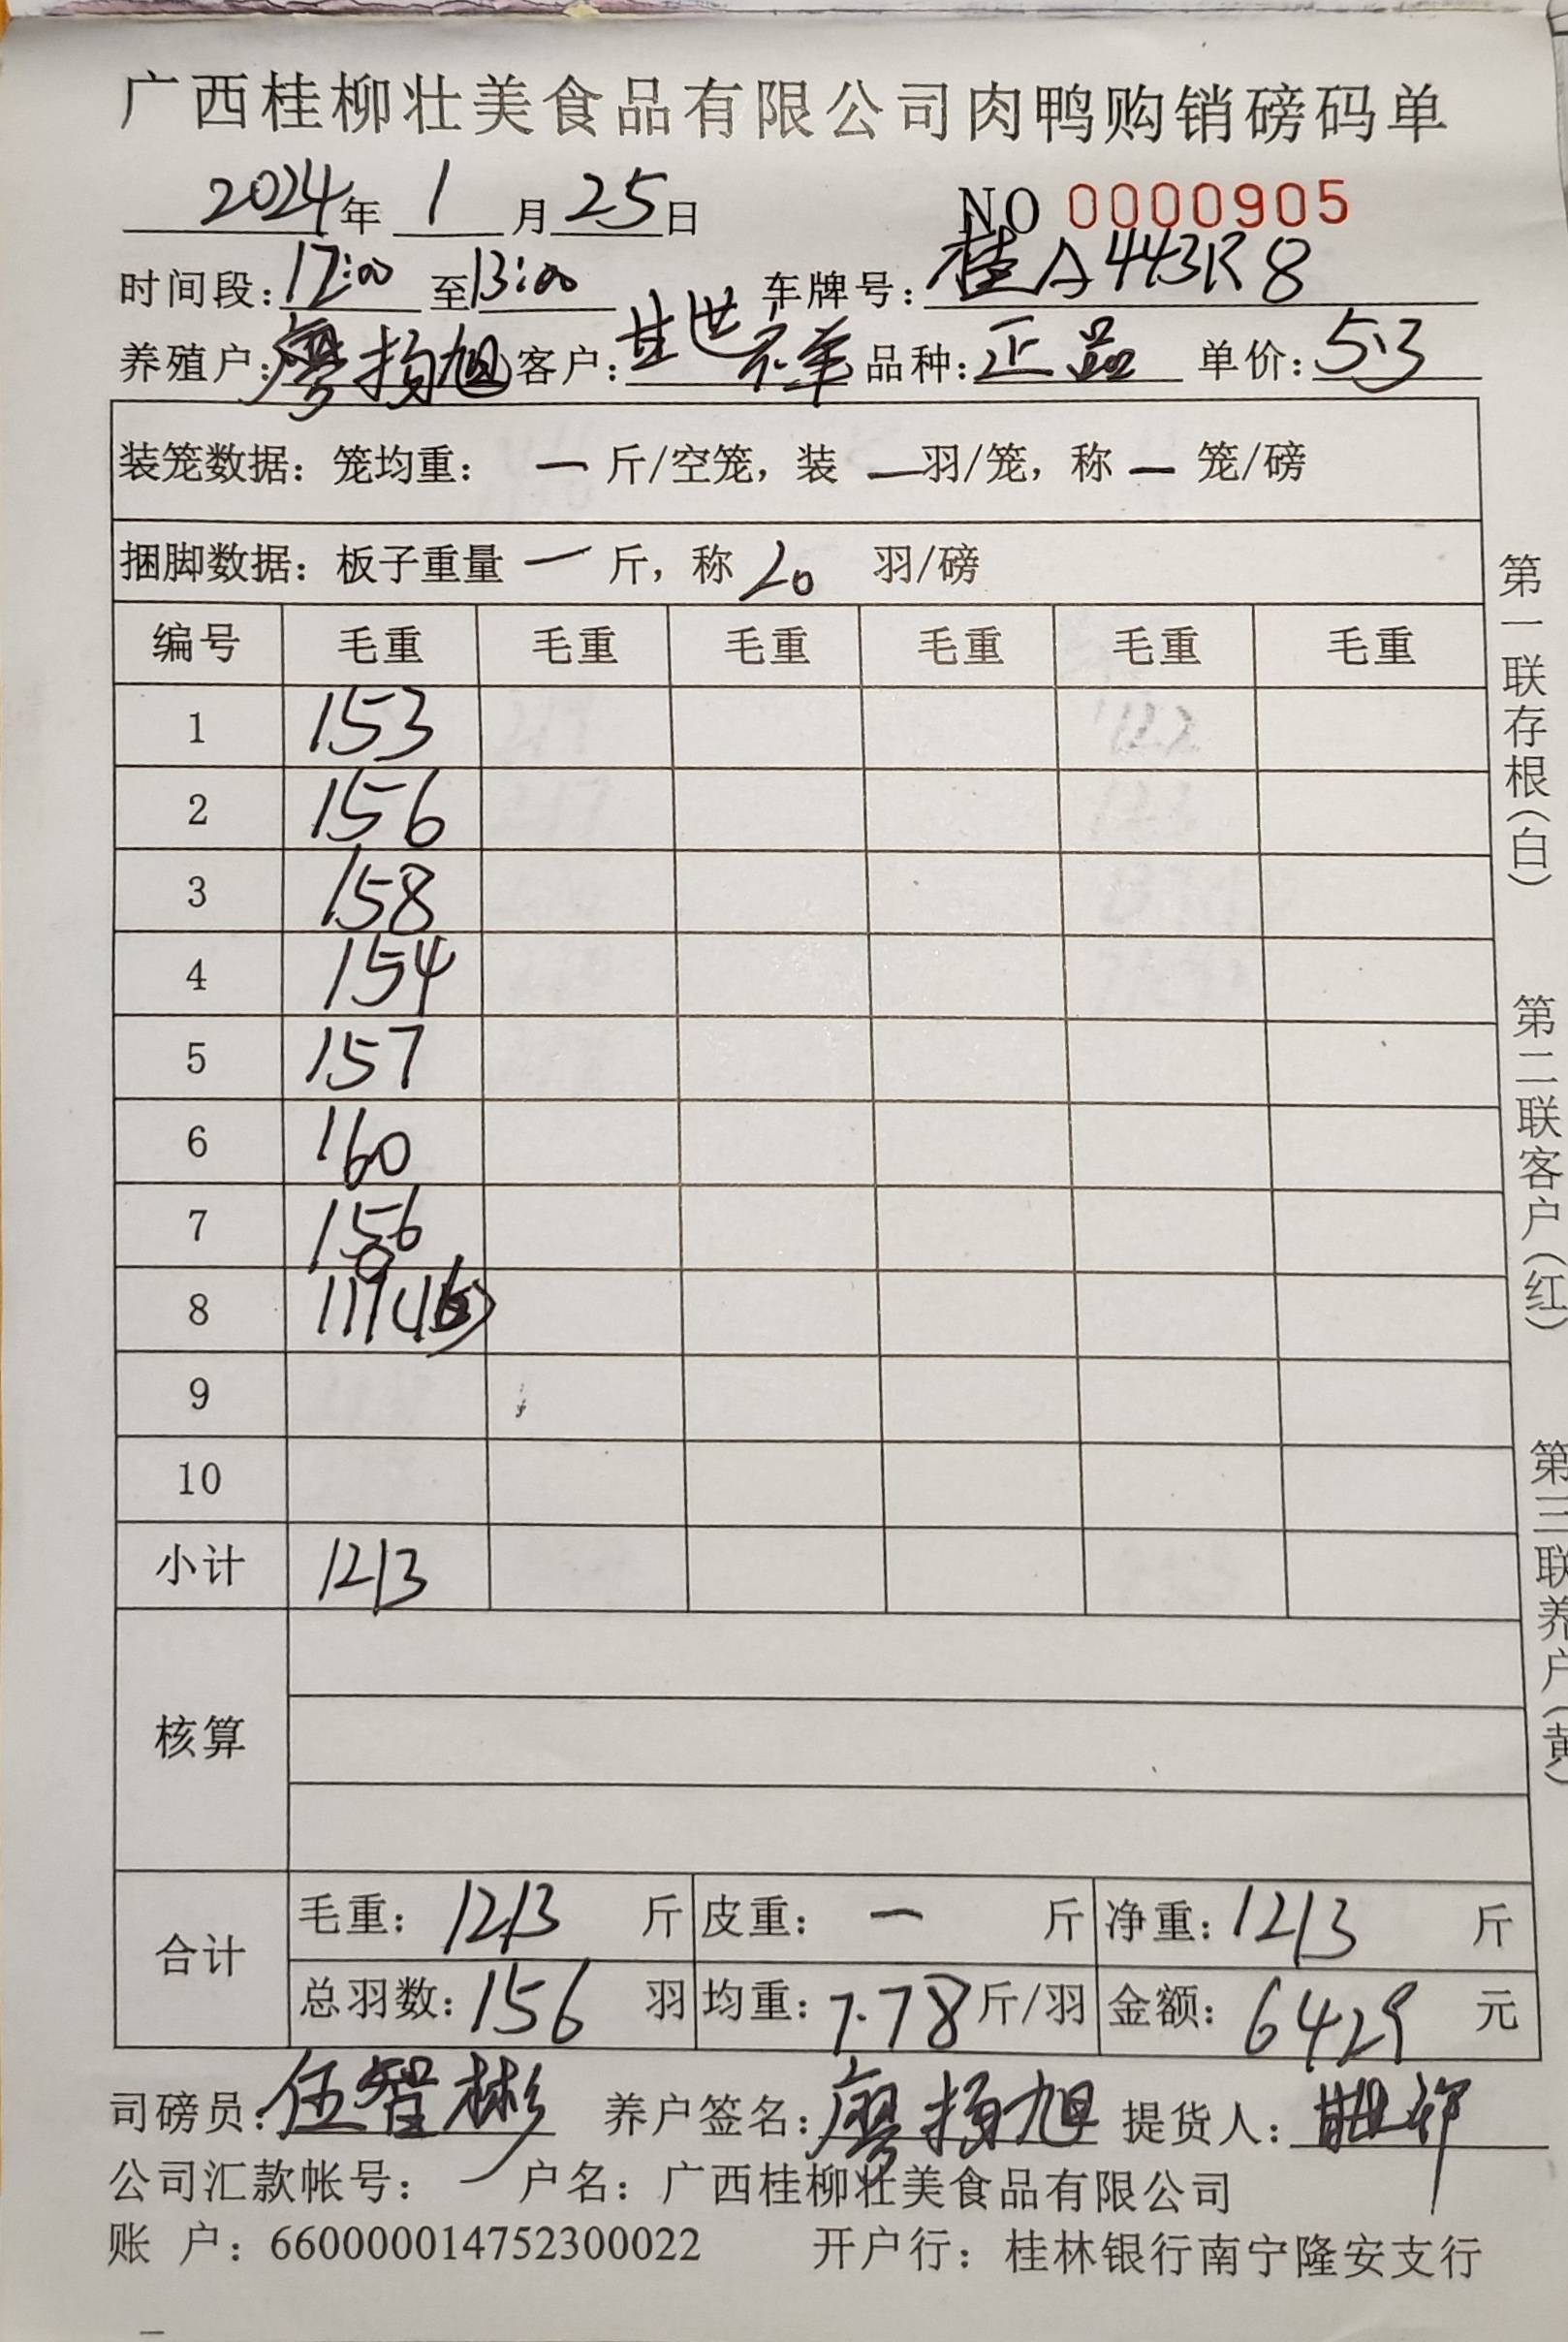 广西桂柳壮美食品有限公司肉鸭购销磅码单
2024年 1 月 25 日 NO 0000905
时间段: 12:00 至 13:00 车牌号: 桂A443R8
养殖户: 廖扬旭 客户: 甘世 品种: 正品 单价: 5.3
装笼数据: 笼均重: 一 斤/空笼, 装 一 羽/笼, 称 一 笼/磅
捆脚数据: 板子重量 一 斤, 称 20 羽/磅
编号 毛重 毛重 毛重 毛重 毛重 毛重
1 153
2 156
3 158
4 154
5 157
6 160
7 156
8 119
9
10
小计 1213
核算
合计 毛重: 1213 斤 皮重: 一 斤 净重: 1213 斤
总羽数: 156 羽 均重: 7.78 斤/羽 金额: 6429 元
司磅员: 伍智彬 养户签名: 廖扬旭 提货人:
公司汇款帐号: 户名: 广西桂柳壮美食品有限公司
账 户: 660000014752300022 开户行: 桂林银行南宁隆安支行
第一联存根(白)
第二联客户(红)
第三联养户(黄)